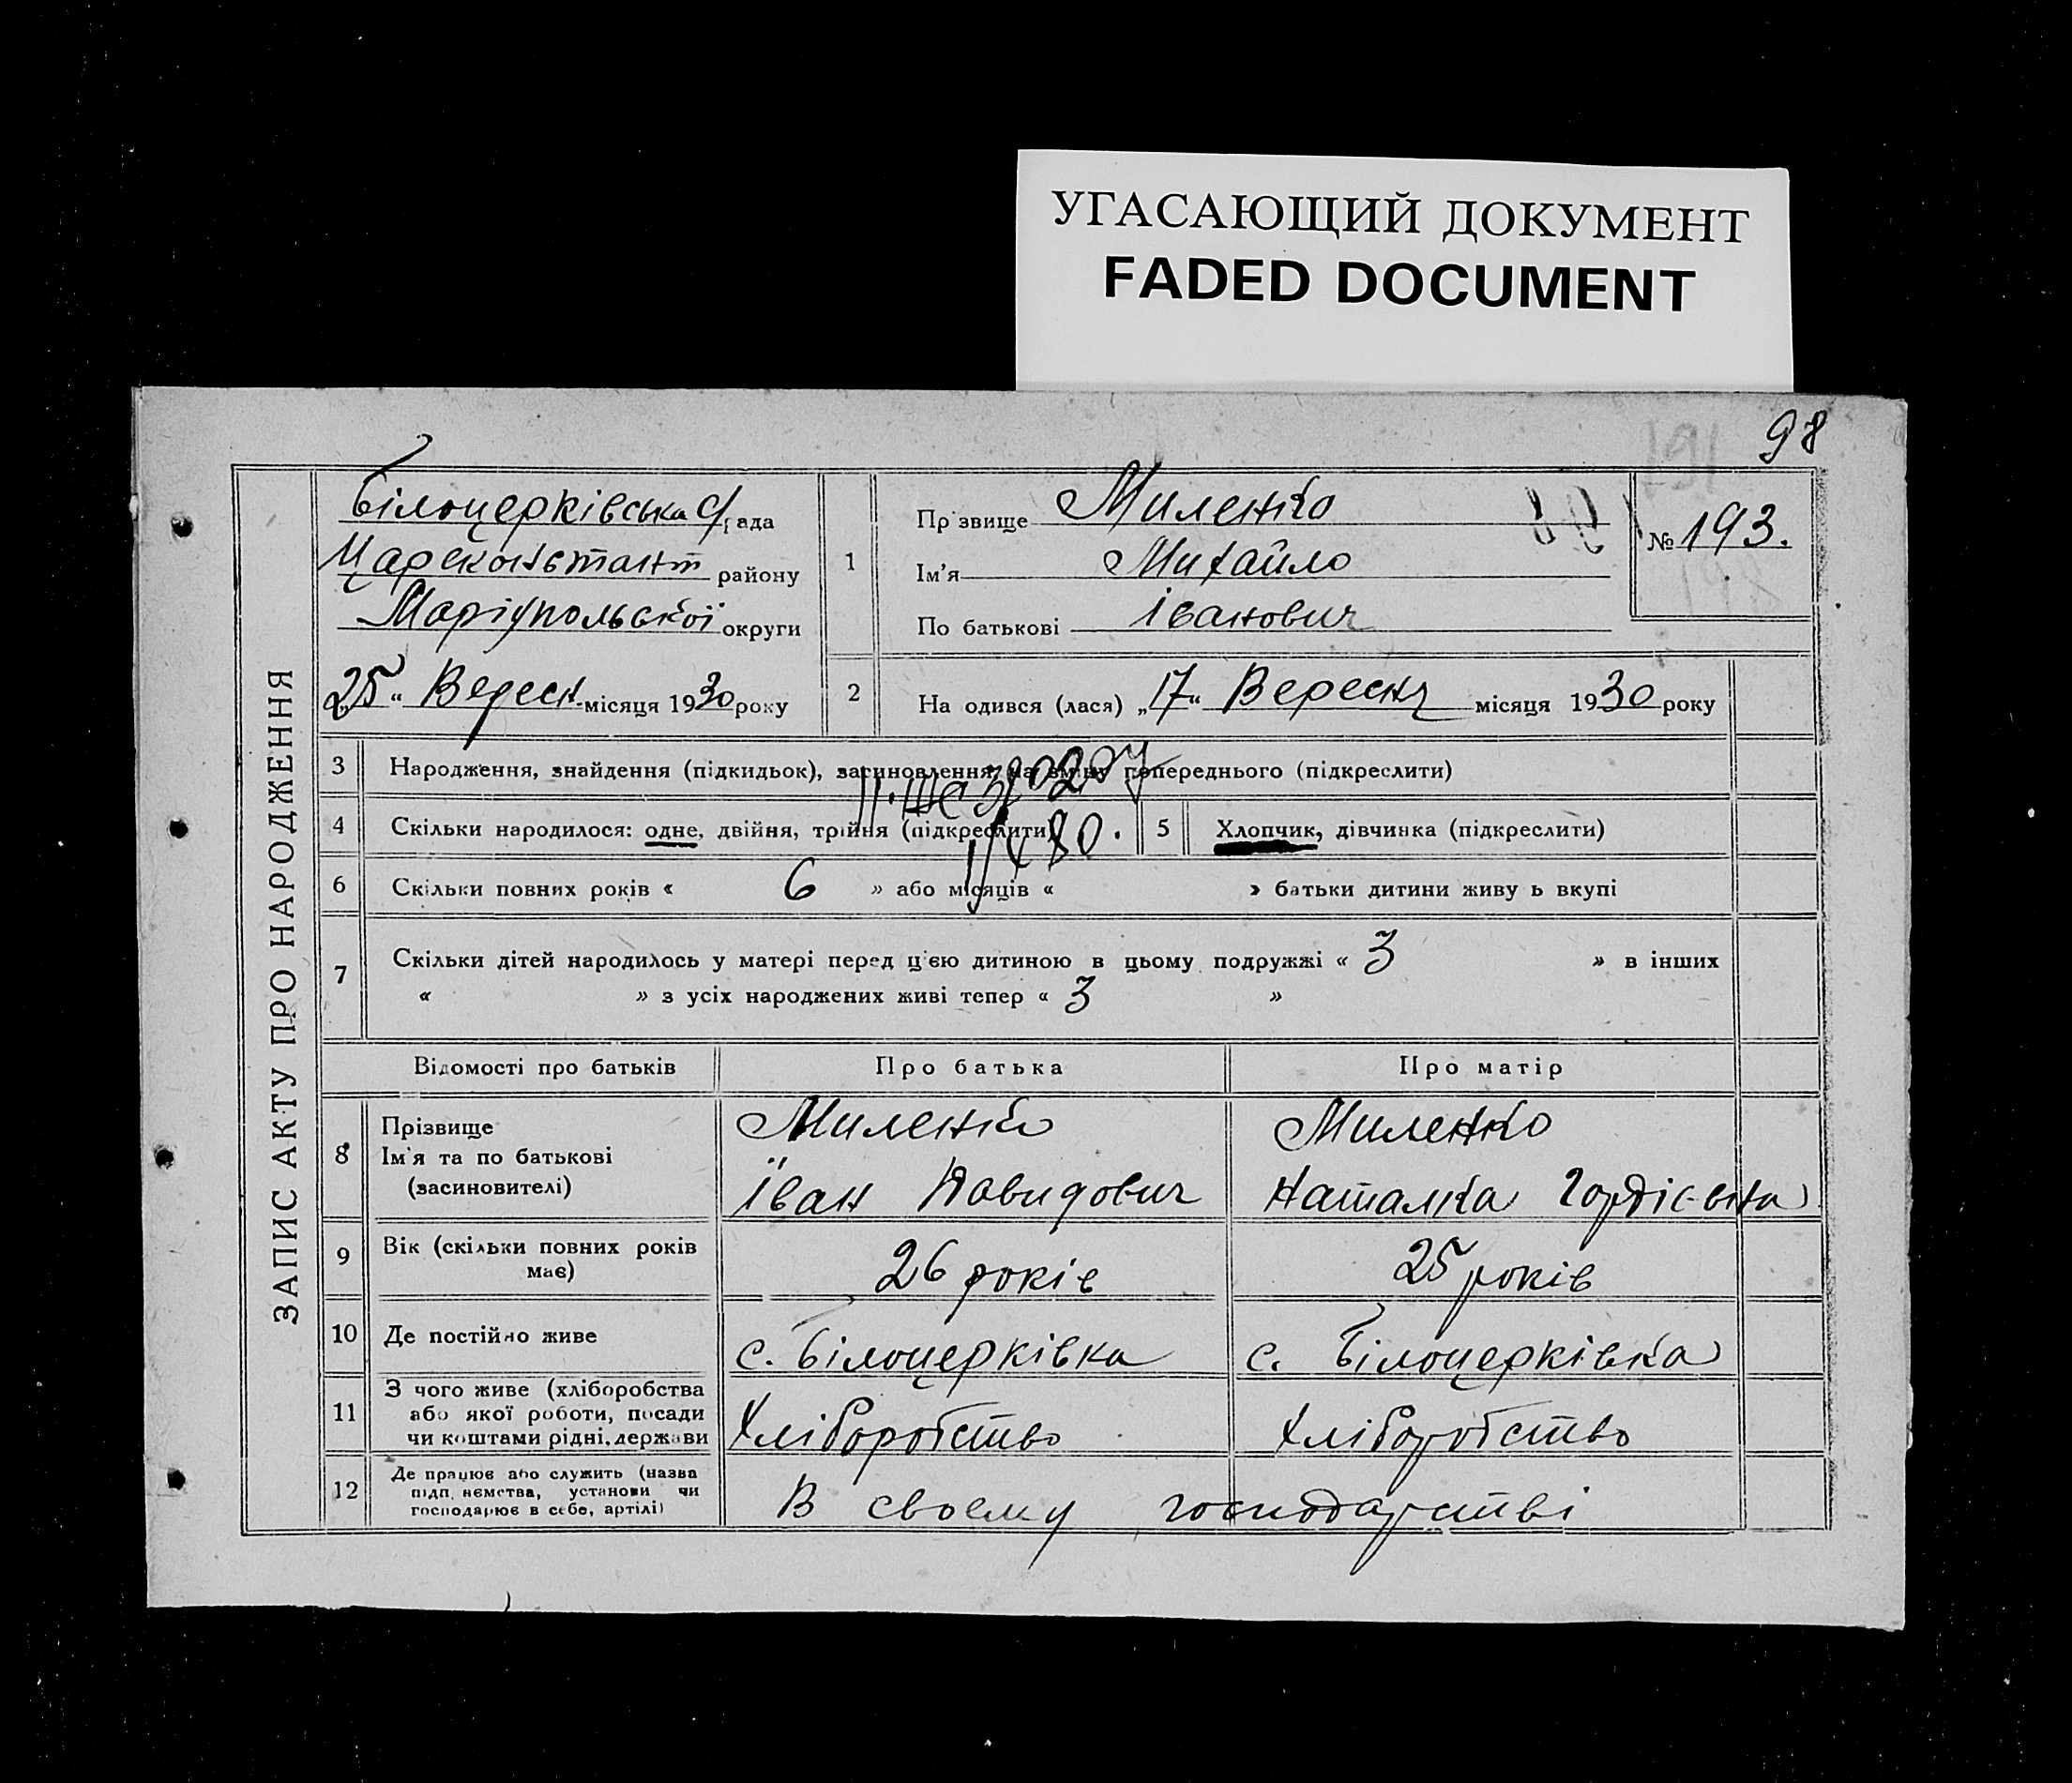 УГАСАЮЩИЙ ДОКУМЕНТ
FADED DOCUMENT
98
ЗАПИС АКТУ ПРО НАРОДЖЕННЯ
Білоцерківська с/рада
Цареконстант району
Маріупольської округи
25 " Вересн. місяця 1930 року
1
Пр звище Миленко
Ім'я Михайло
По батькові Іванович
№ 193.
2
На одився (лася) „17" Вересня місяця 1930 року
3 Народження, знайдення (підкидьок), засиновлення, на зміну попереднього (підкреслити)
4 Скільки народилося: одне, двійня, трійня (підкреслити)
5 Хлопчик, дівчинка (підкреслити)
6 Скільки повних років « 6 » або місяців « » батьки дитини живу ь вкупі
7 Скільки дітей народилось у матері перед ц'єю дитиною в цьому подружжі « 3 » в інших
« » з усіх народжених живі тепер « 3 »
Відомості про батьків Про батька Про матір
8 Прізвище Миленко Миленко
Ім'я та по батькові
(засиновителі) Іван Давидович Наталка Гордієвна
9 Вік (скільки повних років
має) 26 років 25 років
10 Де постійно живе с. Білоцерківка с. Білоцерківка
11 З чого живе (хліборобства
або якої роботи, посади
чи коштами рідні, держави Хліборобство Хліборобство
12 Де працює або служить (назва
підп, нємства, установи чи
господарює в себе, артілі) В своєму господарстві